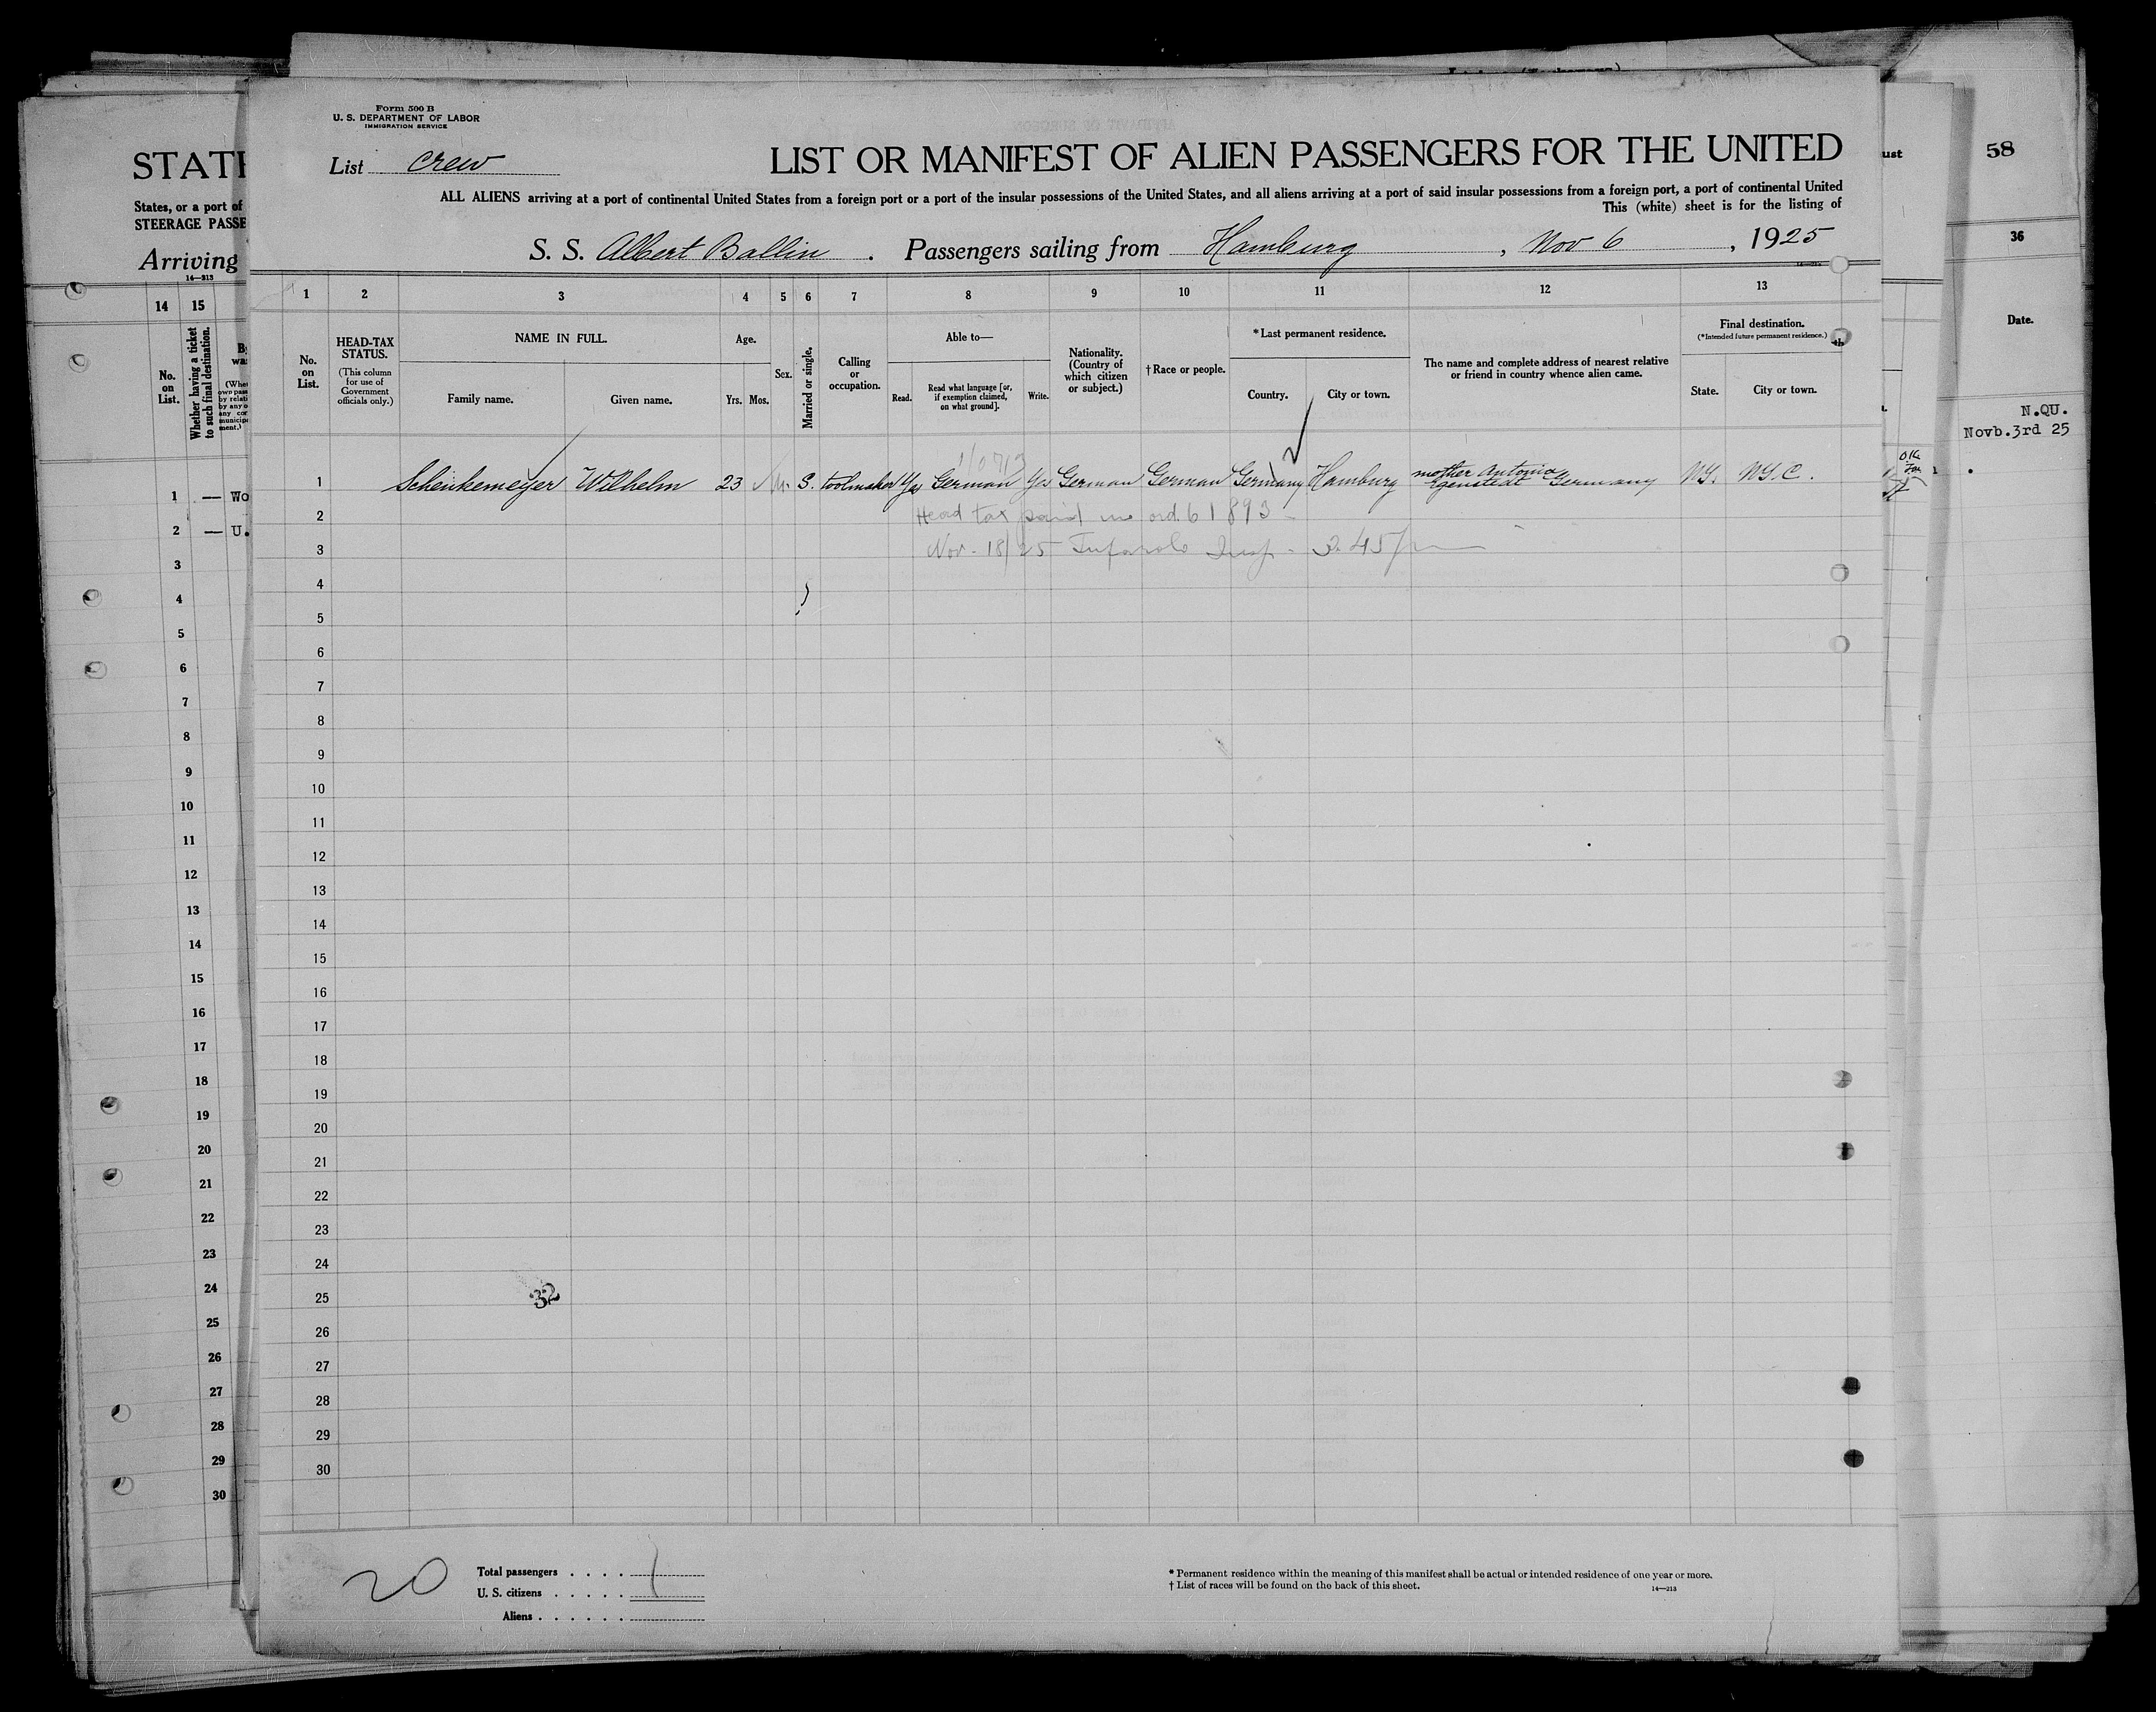 Form 500 B
U. S. DEPARTMENT OF LABOR
IMMIGRATION SERVICE
List crew
LIST OR MANIFEST OF ALIEN PASSENGERS FOR THE UNITED
ALL ALIENS arriving at a port of continental United States from a foreign port or a port of the insular possessions of the United States, and all aliens arriving at a port of said insular possessions from a foreign port, a port of continental United
This (white) sheet is for the listing of
S. S. Albert Ballin . Passengers sailing from Hamburg , Nov 6 , 1925
1 2 3 4 5 6 7 8 9 10 11 12 13
No. on List.
HEAD-TAX STATUS.
(This column for use of Government officials only.)
NAME IN FULL.
Family name. Given name.
Age.
Yrs. Mos.
Sex.
Married or single.
Calling or occupation.
Able to—
Read. Read what language [or, if exemption claimed, on what ground]. Write.
Nationality. (Country of which citizen or subject.)
†Race or people.
*Last permanent residence.
Country. City or town.
The name and complete address of nearest relative or friend in country whence alien came.
Final destination.
(*Intended future permanent residence.)
State. City or town.
1 Schenkemeyer Wilhelm 23 M. S. toolmaker Yes German Yes German German Germany Hamburg mother Antonia Egenstedt Germany NY. NY.C.
2 Head tax paid ord. 61893
3 Nov - 18/25 Insp.
4
5
6
7
8
9
10
11
12
13
14
15
16
17
18
19
20
21
22
23
24
25
26
27
28
29
30
32
20
Total passengers . . . . 1
U. S. citizens . . . . .
Aliens . . . . . .
* Permanent residence within the meaning of this manifest shall be actual or intended residence of one year or more.
† List of races will be found on the back of this sheet.
14—213
STATE
States, or a port of
STEERAGE PASSE
Arriving
14—213
14 15
No. on List.
Whether having a ticket to such final destination.
1 — Wo
2 — U.
3
4
5
6
7
8
9
10
11
12
13
14
15
16
17
18
19
20
21
22
23
24
25
26
27
28
29
30
ust
58
36
Date.
N.QU.
Novb.3rd 25